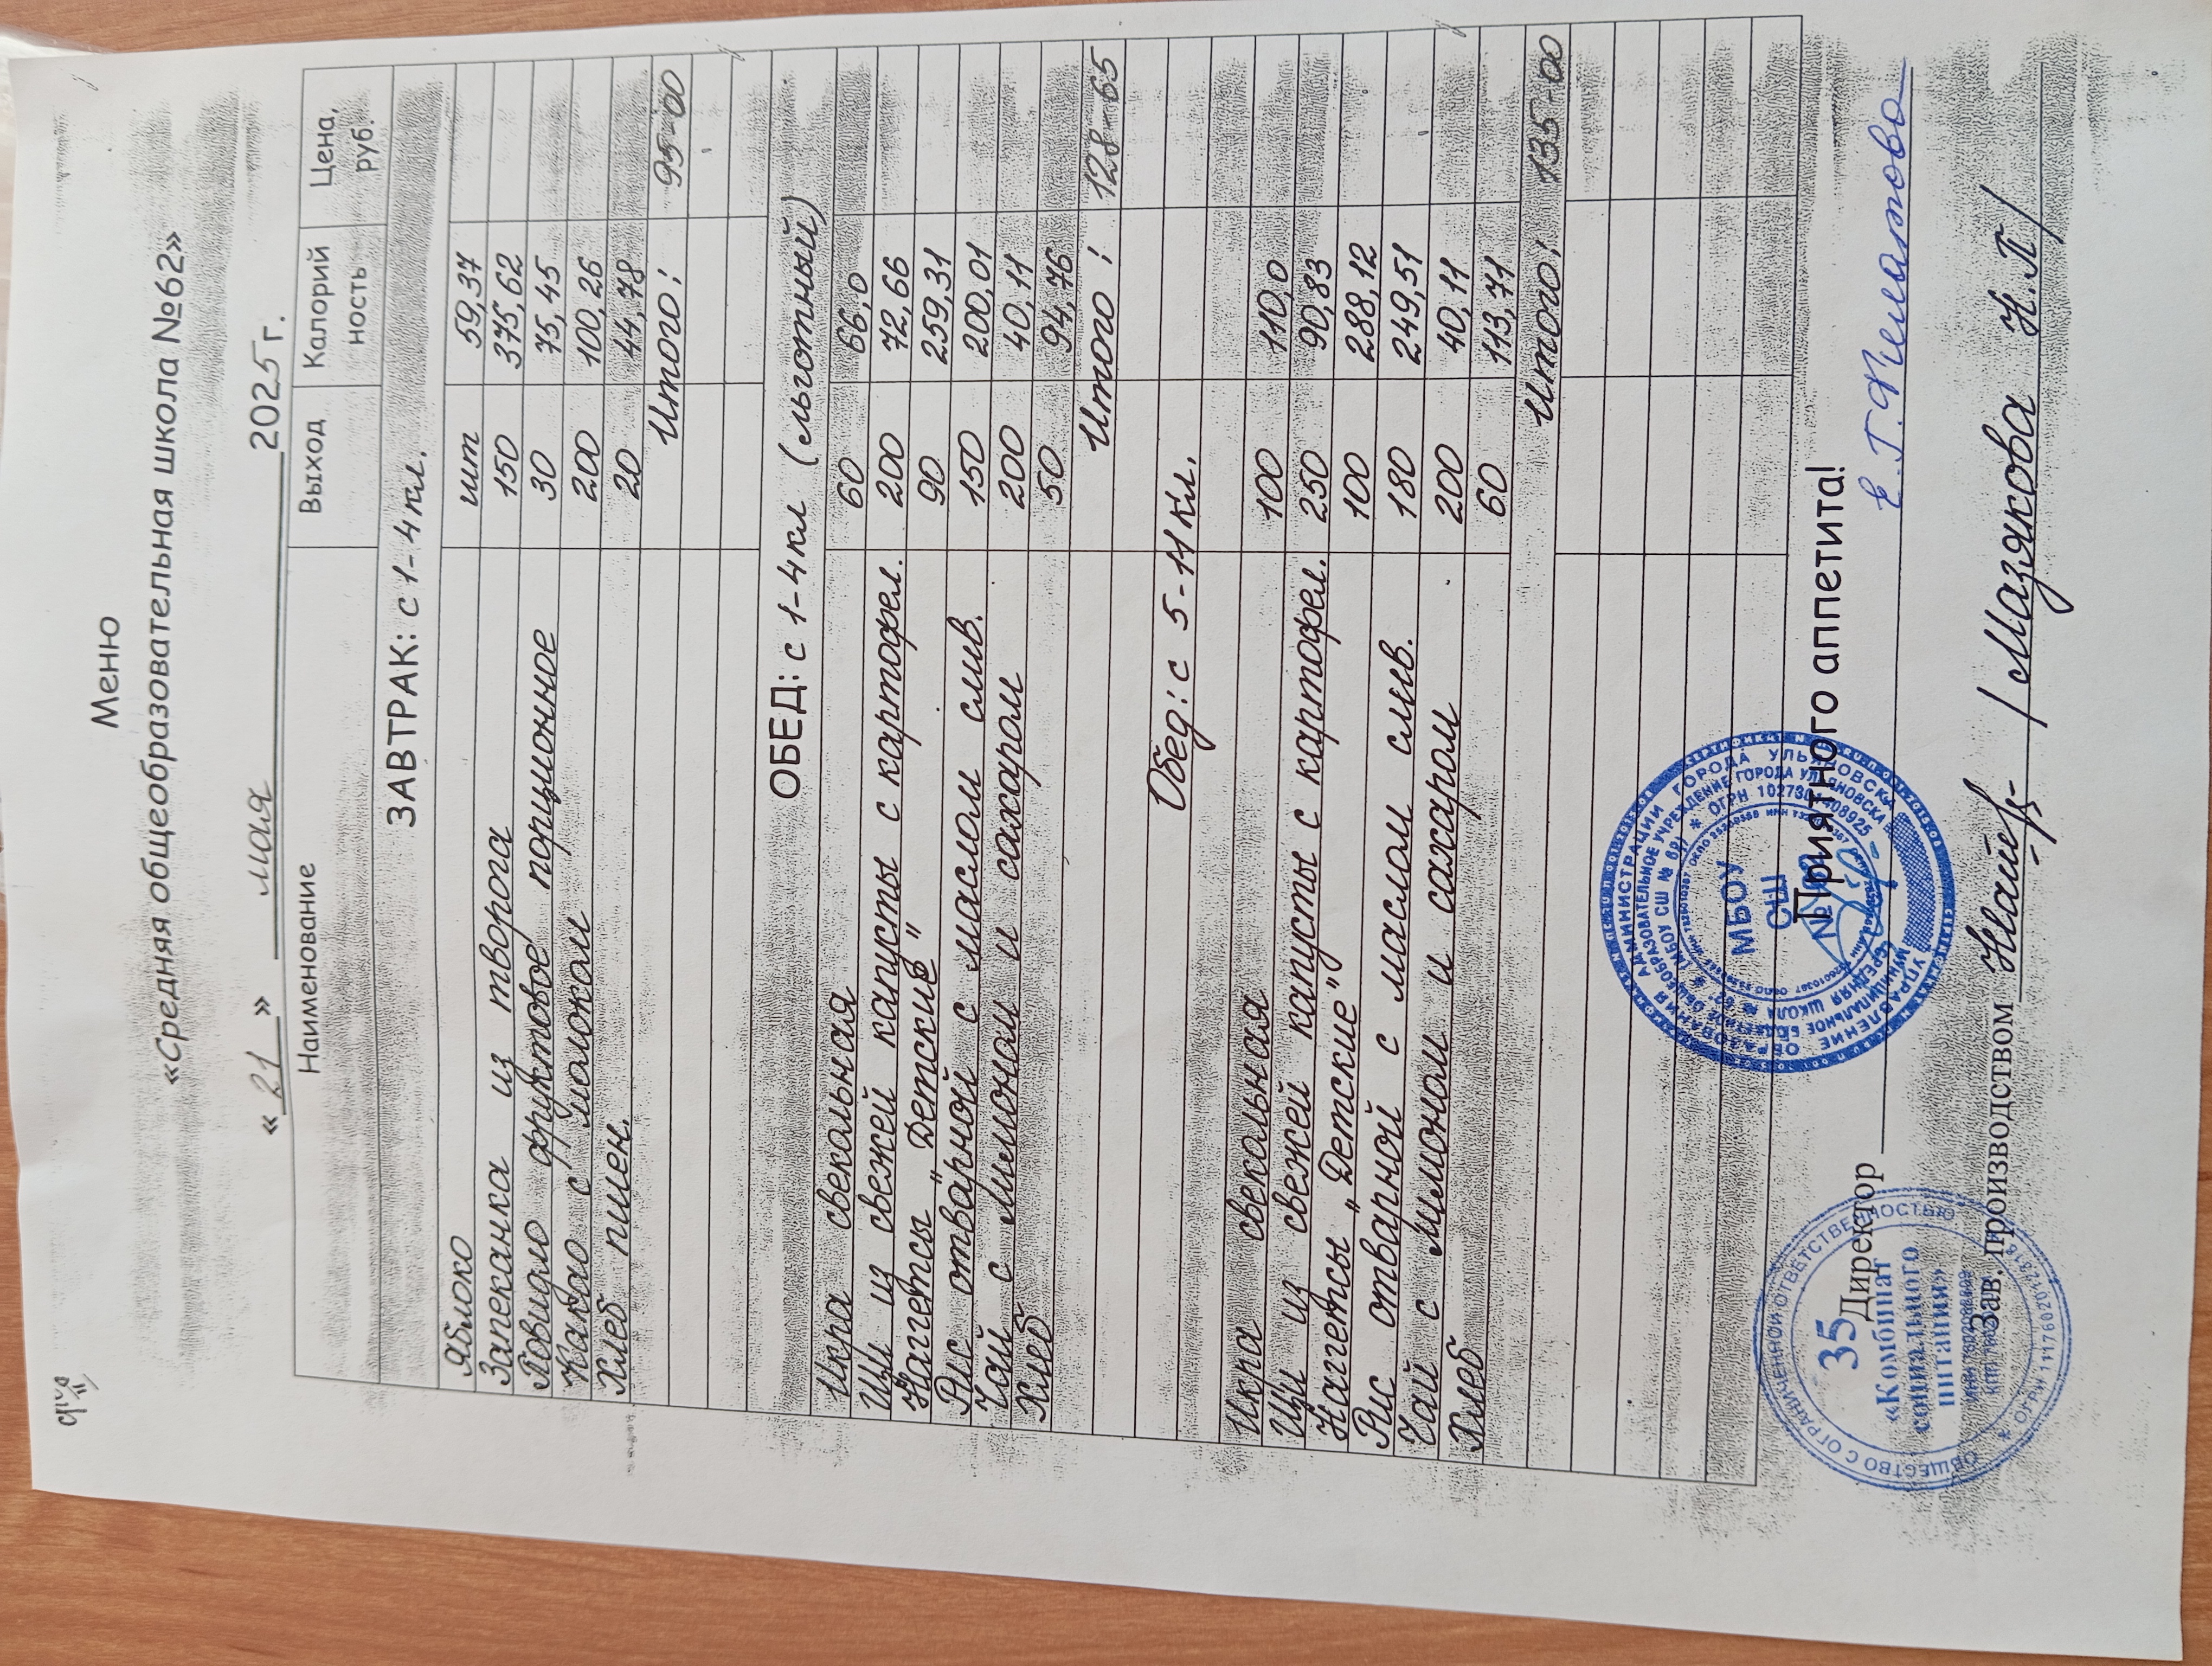 Меню
«Средняя общеобразовательная школа №62»
«21» мая 2025 г.
Наименование Выход Калорийность Цена, руб.
ЗАВТРАК: с 1-4 кл.
Яблоко шт 59,37
Запеканка из творога 150 375,62
Повидло фруктовое порционное 30 75,45
Какао с молоком 200 100,26
Хлеб пшен. 20 44,78
Итого: 95-00
ОБЕД: с 1-4 кл (льготный)
Икра свекольная 60 66,0
Щи из свежей капусты с картофел. 200 72,66
Наггетсы „Детские" 90 259,31
Рис отварной с маслом слив. 150 200,01
Чай с лимоном и сахаром 200 40,11
Хлеб 50 94,76
Итого: 128-65
Обед: с 5-11 кл.
Икра свекольная 100 110,0
Щи из свежей капусты с картофел. 250 90,83
Наггетсы „Детские" 100 288,12
Рис отварной с маслом слив. 180 249,51
Чай с лимоном и сахаром 200 40,11
Хлеб 60 113,71
Итого: 135-00
Приятного аппетита!
Директор Е.Г. Филатова
Зав. производством /Мазякова Н.П/
УПРАВЛЕНИЕ ОБРАЗОВАНИЯ АДМИНИСТРАЦИИ ГОРОДА УЛЬЯНОВСКА
МБОУ
СШ
ОБЩЕСТВО С ОГРАНИЧЕННОЙ ОТВЕТСТВЕННОСТЬЮ
35
«Комбинат
социального
питания»